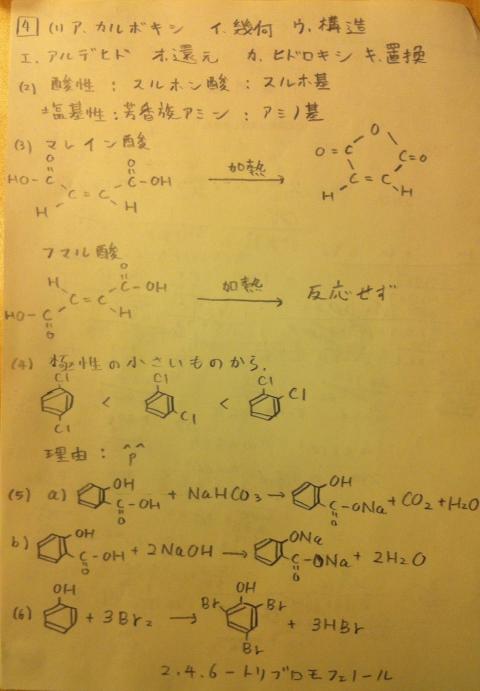 4 (1) ア. カルボキシ イ. 幾何 ウ. 構造
エ. アルデヒド オ. 還元 カ. ヒドロキシ キ. 置換
(2) 酸性 : スルホン酸 : スルホ基
塩基性 : 芳香族アミン : アミノ基
(3) マレイン酸
O O O
HO-C C-OH 加熱 → O=C C=O
C=C C=C
H H H H
フマル酸
H O
C-OH
C=C 加熱 → 反応せず
HO-C H
O
(4) 極性の小さいものから,
Cl Cl Cl
< < Cl
Cl Cl
理由 : ^^ p
(5) a) OH C-OH O + NaHCO3 → OH C-ONa O + CO2 + H2O
b) OH C-OH O + 2NaOH → ONa C-ONa O + 2H2O
(6) OH + 3Br2 → OH Br Br Br + 3HBr
2.4.6-トリブロモフェノール